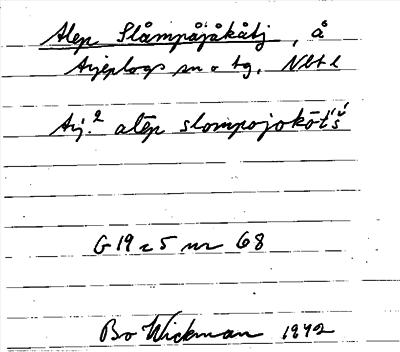 Alep Slåmpåjåkåtj, å
Arjeplogs sn o tg. Nbt l
Arj.2 alēp slompojokōt'š́
G 19 c 5 nr 68
Bo Wickman 1942